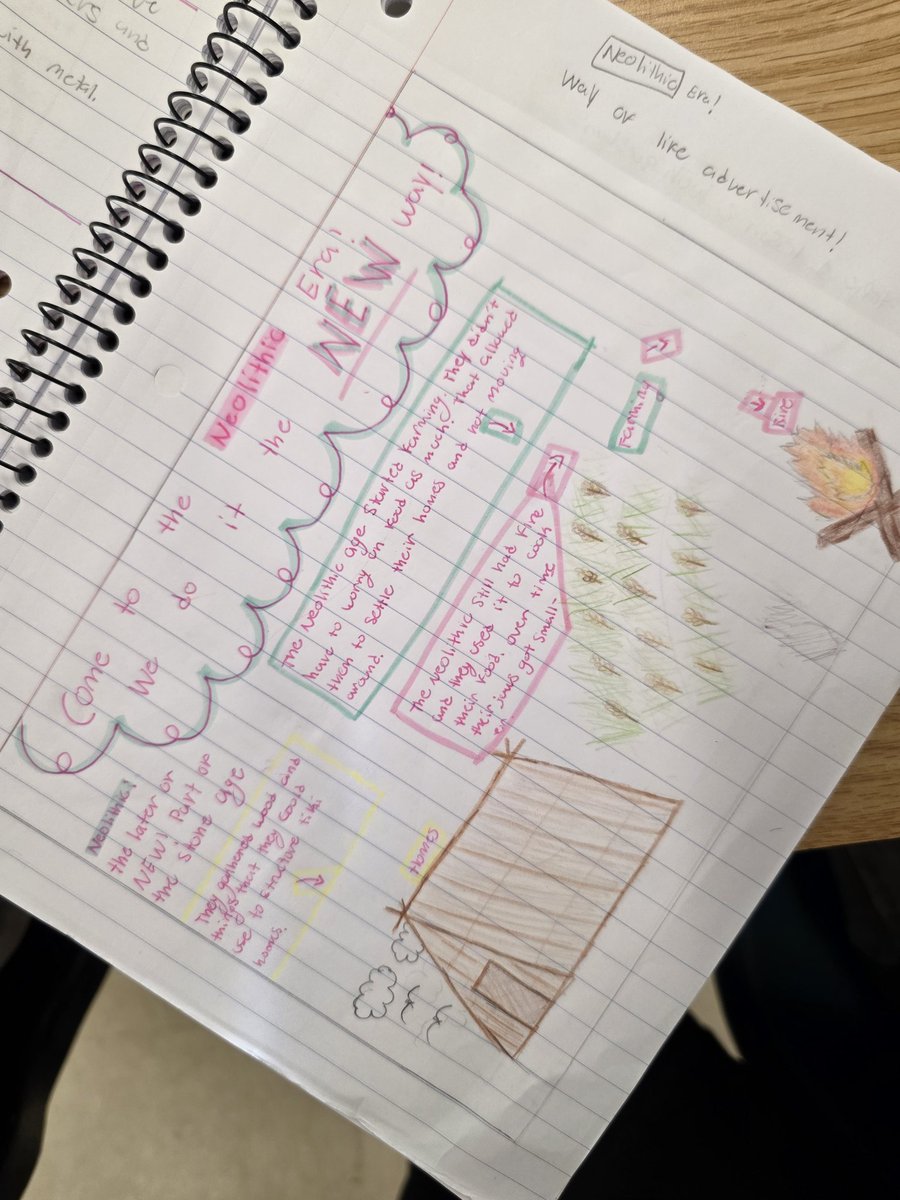 Neolithic Era!
Way or like advertisement!
ers and
with metal.
Come to the Neolithic Era!
We do it the NEW way!
Neolithic!
the later or
NEW Part or
the stone age
The Neolithic age started Farming. They didn't
have to worry on Food as much! That allowed
them to settle their homes and not moving
around.
Farming
The neolithic still had Fire
and they used it to cook
their Food. over time
their jaws got small-
er.
Fire
They gathered wood and
things that they could
use to structure
homes.
Homes